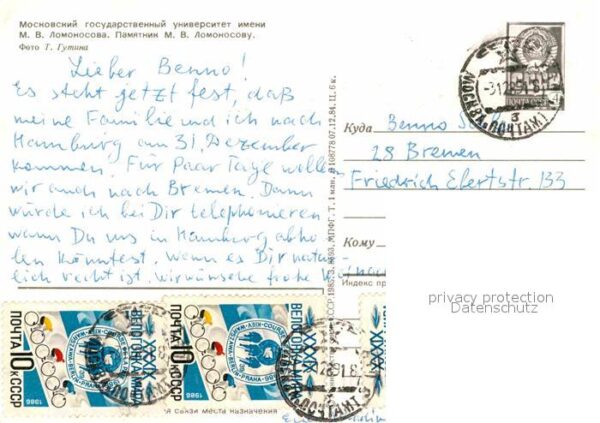 Московский государственный университет имени
М. В. Ломоносова. Памятник М. В. Ломоносову.
Фото Т. Гутина
Lieber Benno!
Es steht jetzt fest, daß
meine Familie und ich nach
Hamburg am 31. Dezember
kommen. Für Paar Tage wollen
wir auch nach Bremen. Dann
würde ich bei Dir telephonieren
wann Du uns in Hamburg abho-
len könntest, wenn es Dir natür-
lich recht ist. Wir wünschen frohe
Куда Benno
28 Bremen
Friedrich Ebertstr. 133
Кому
Индекс
privacy protection
Datenschutz
ПОЧТА СССР
МОСКВА ПОЧТАМТ
XXXIX
ВЕЛОГОНКА МИРА
ПОЧТА
10К СССР
1986
XXXIX
ВЕЛОГОНКА МИРА
ПОЧТА
10К СССР
1986
МОСКВА ПОЧТАМТ
связи места назначения